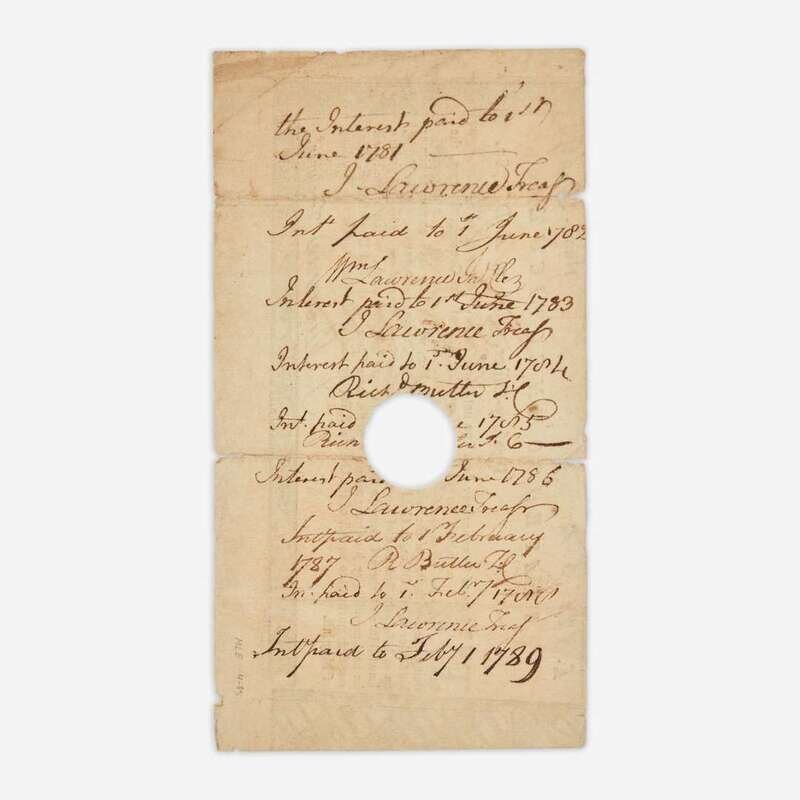 the Interest paid to 1st
June 1781
J. Lawrence Treasr
Intt paid to 1st June 1782
Wm Lawrence
Interest paid to 1st June 1783
J Lawrence Treasr
Interest paid to 1st June 1784
Richd Butler
Int. paid 1785
Interest paid June 1786
J Lawrence Treasr
Int paid to 1 February
1787 R Butler
In. paid to 1st Feby
J Lawrence Treasr
Intt paid to Feby 1 1789